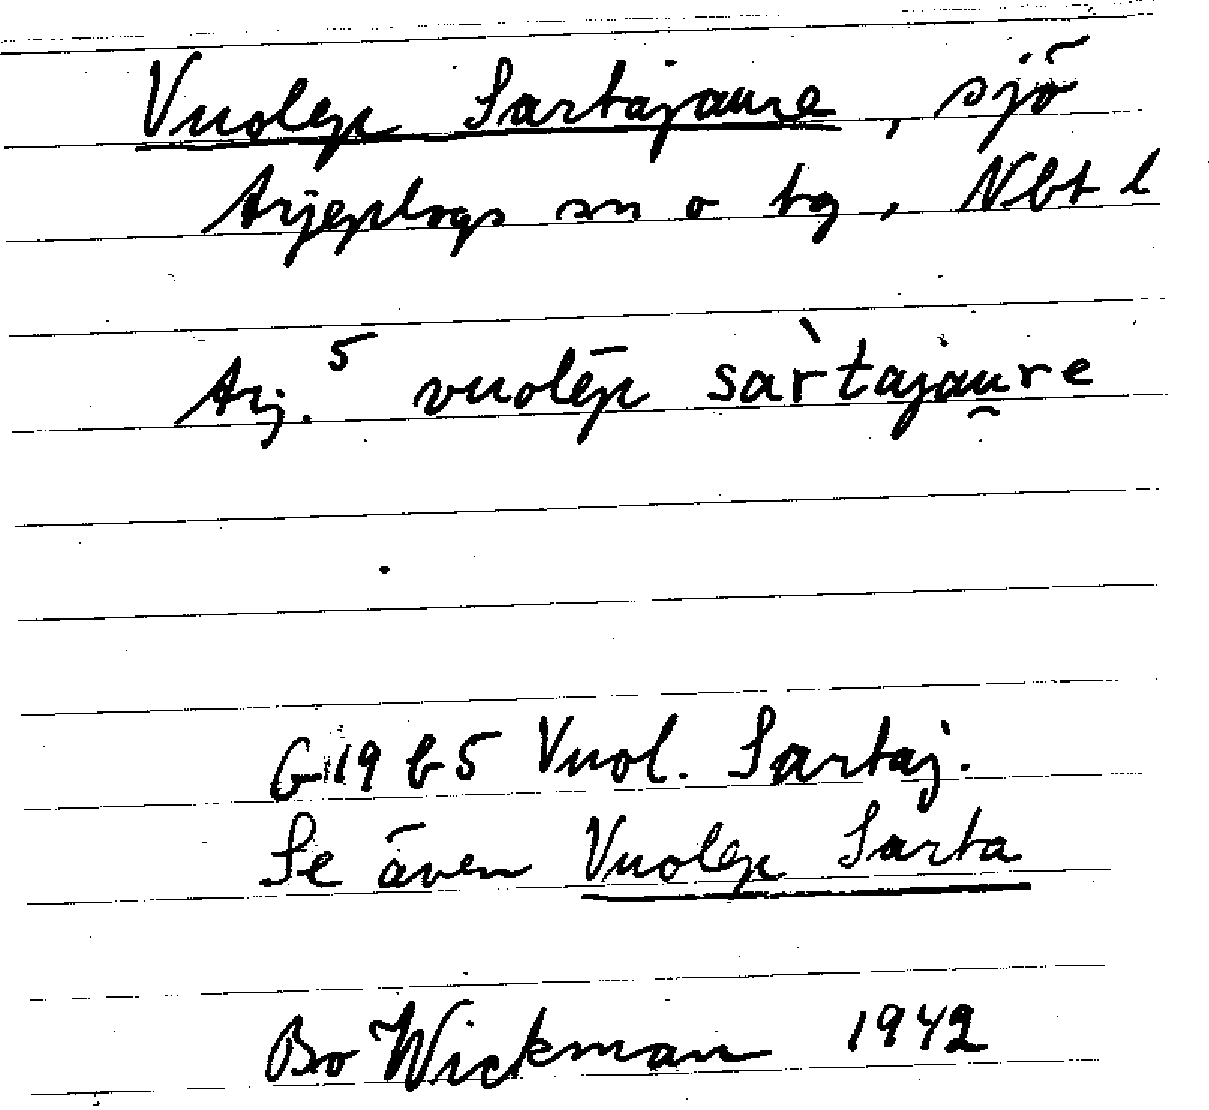 Vuolep Sartajaure, sjö
Arjeplogs sn o tg, Nbt l
Arj. 5 vuolēp sàrtajau̯re
G 19 b 5 Vuol. Sartaj.
Se även Vuolep Sarta
Bo Wickman 1942